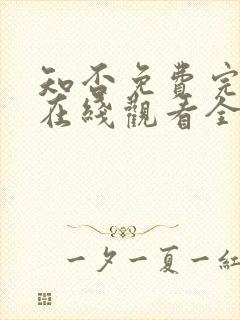 知否免費完
在綫觀看全
一夕一夏一紅